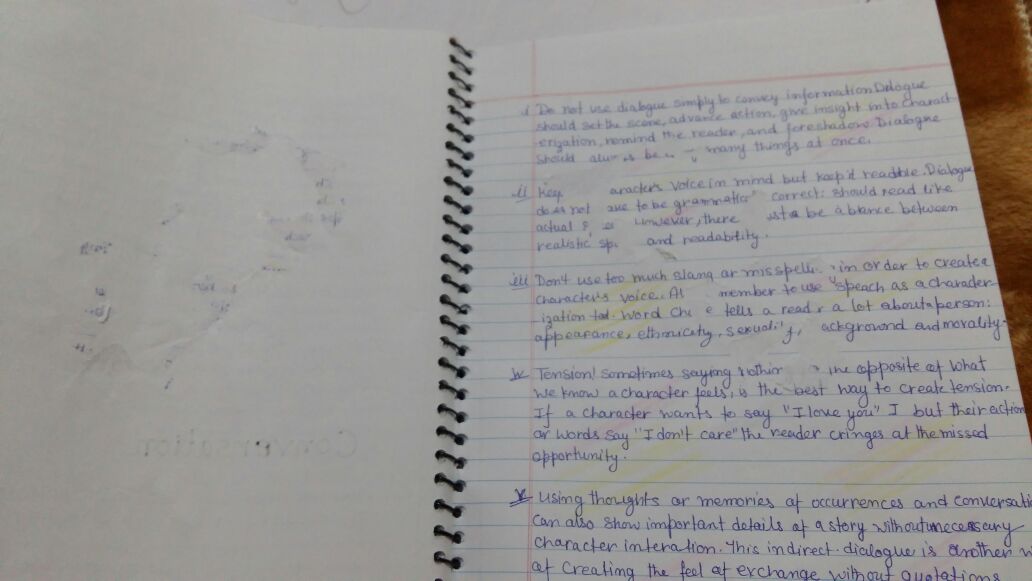 Conversation
i Do not use dialogue simply to convey information Dilogue
should set the scene, advance action, give insight into charact-
erization, remind the reader, and foreshadow. Dialogue
should be many things at once.
ii Keep aracters voice in mind but keep it readable. Dialogue
does not ave to be grammatic correct: should read like
actual s However, there be a blance between
realistic sp and readability.
iii Don't use too much slang or misspell in order to create a
character's voice. Al member to use speach as a character
ization tol. Word Ch e tells a read r a lot about a person:
appearance, ethnicity, sexuality, ackground and morality.
iv Tension! Sometimes saying nothin the opposite of what
we know a character feels, is the best way to create tension.
If a character wants to say "I love you" I but their action
or words say "I don't care" the reader cringes at the missed
opportunity.
v Using thoughts or memories of occurrences and conversati
can also show important details of a story without unnecessary
character interation. This indirect dialogue is another w
of creating the feel of exchange without quotations